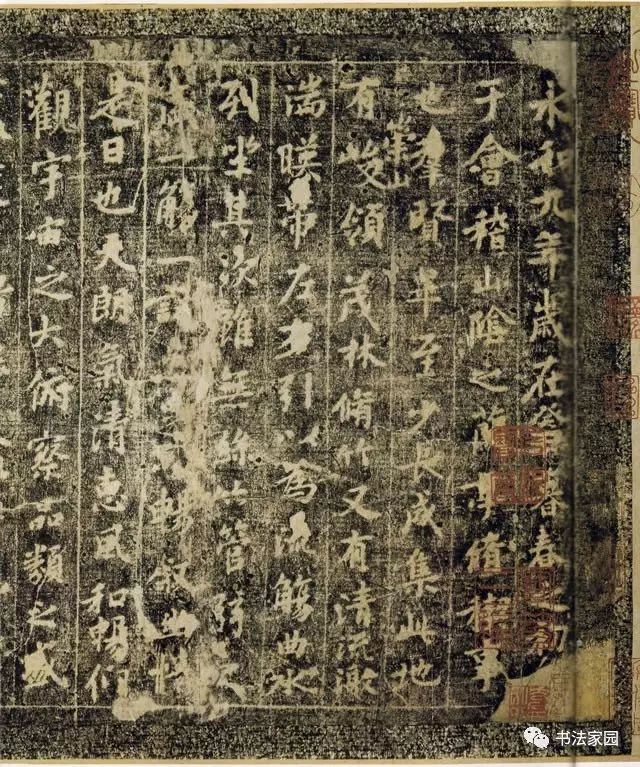 永和九年歲在癸丑暮春之初
于會稽山陰之蘭亭脩禊事
也羣賢畢至少長咸集此地
崇山
有峻領茂林脩竹又有清流激
湍暎帶左右引以為流觴曲水
列坐其次雖無絲竹管弦之
盛一觴一詠亦足以暢敘幽情
是日也天朗氣清惠風和暢仰
觀宇宙之大俯察品類之盛
书法家园